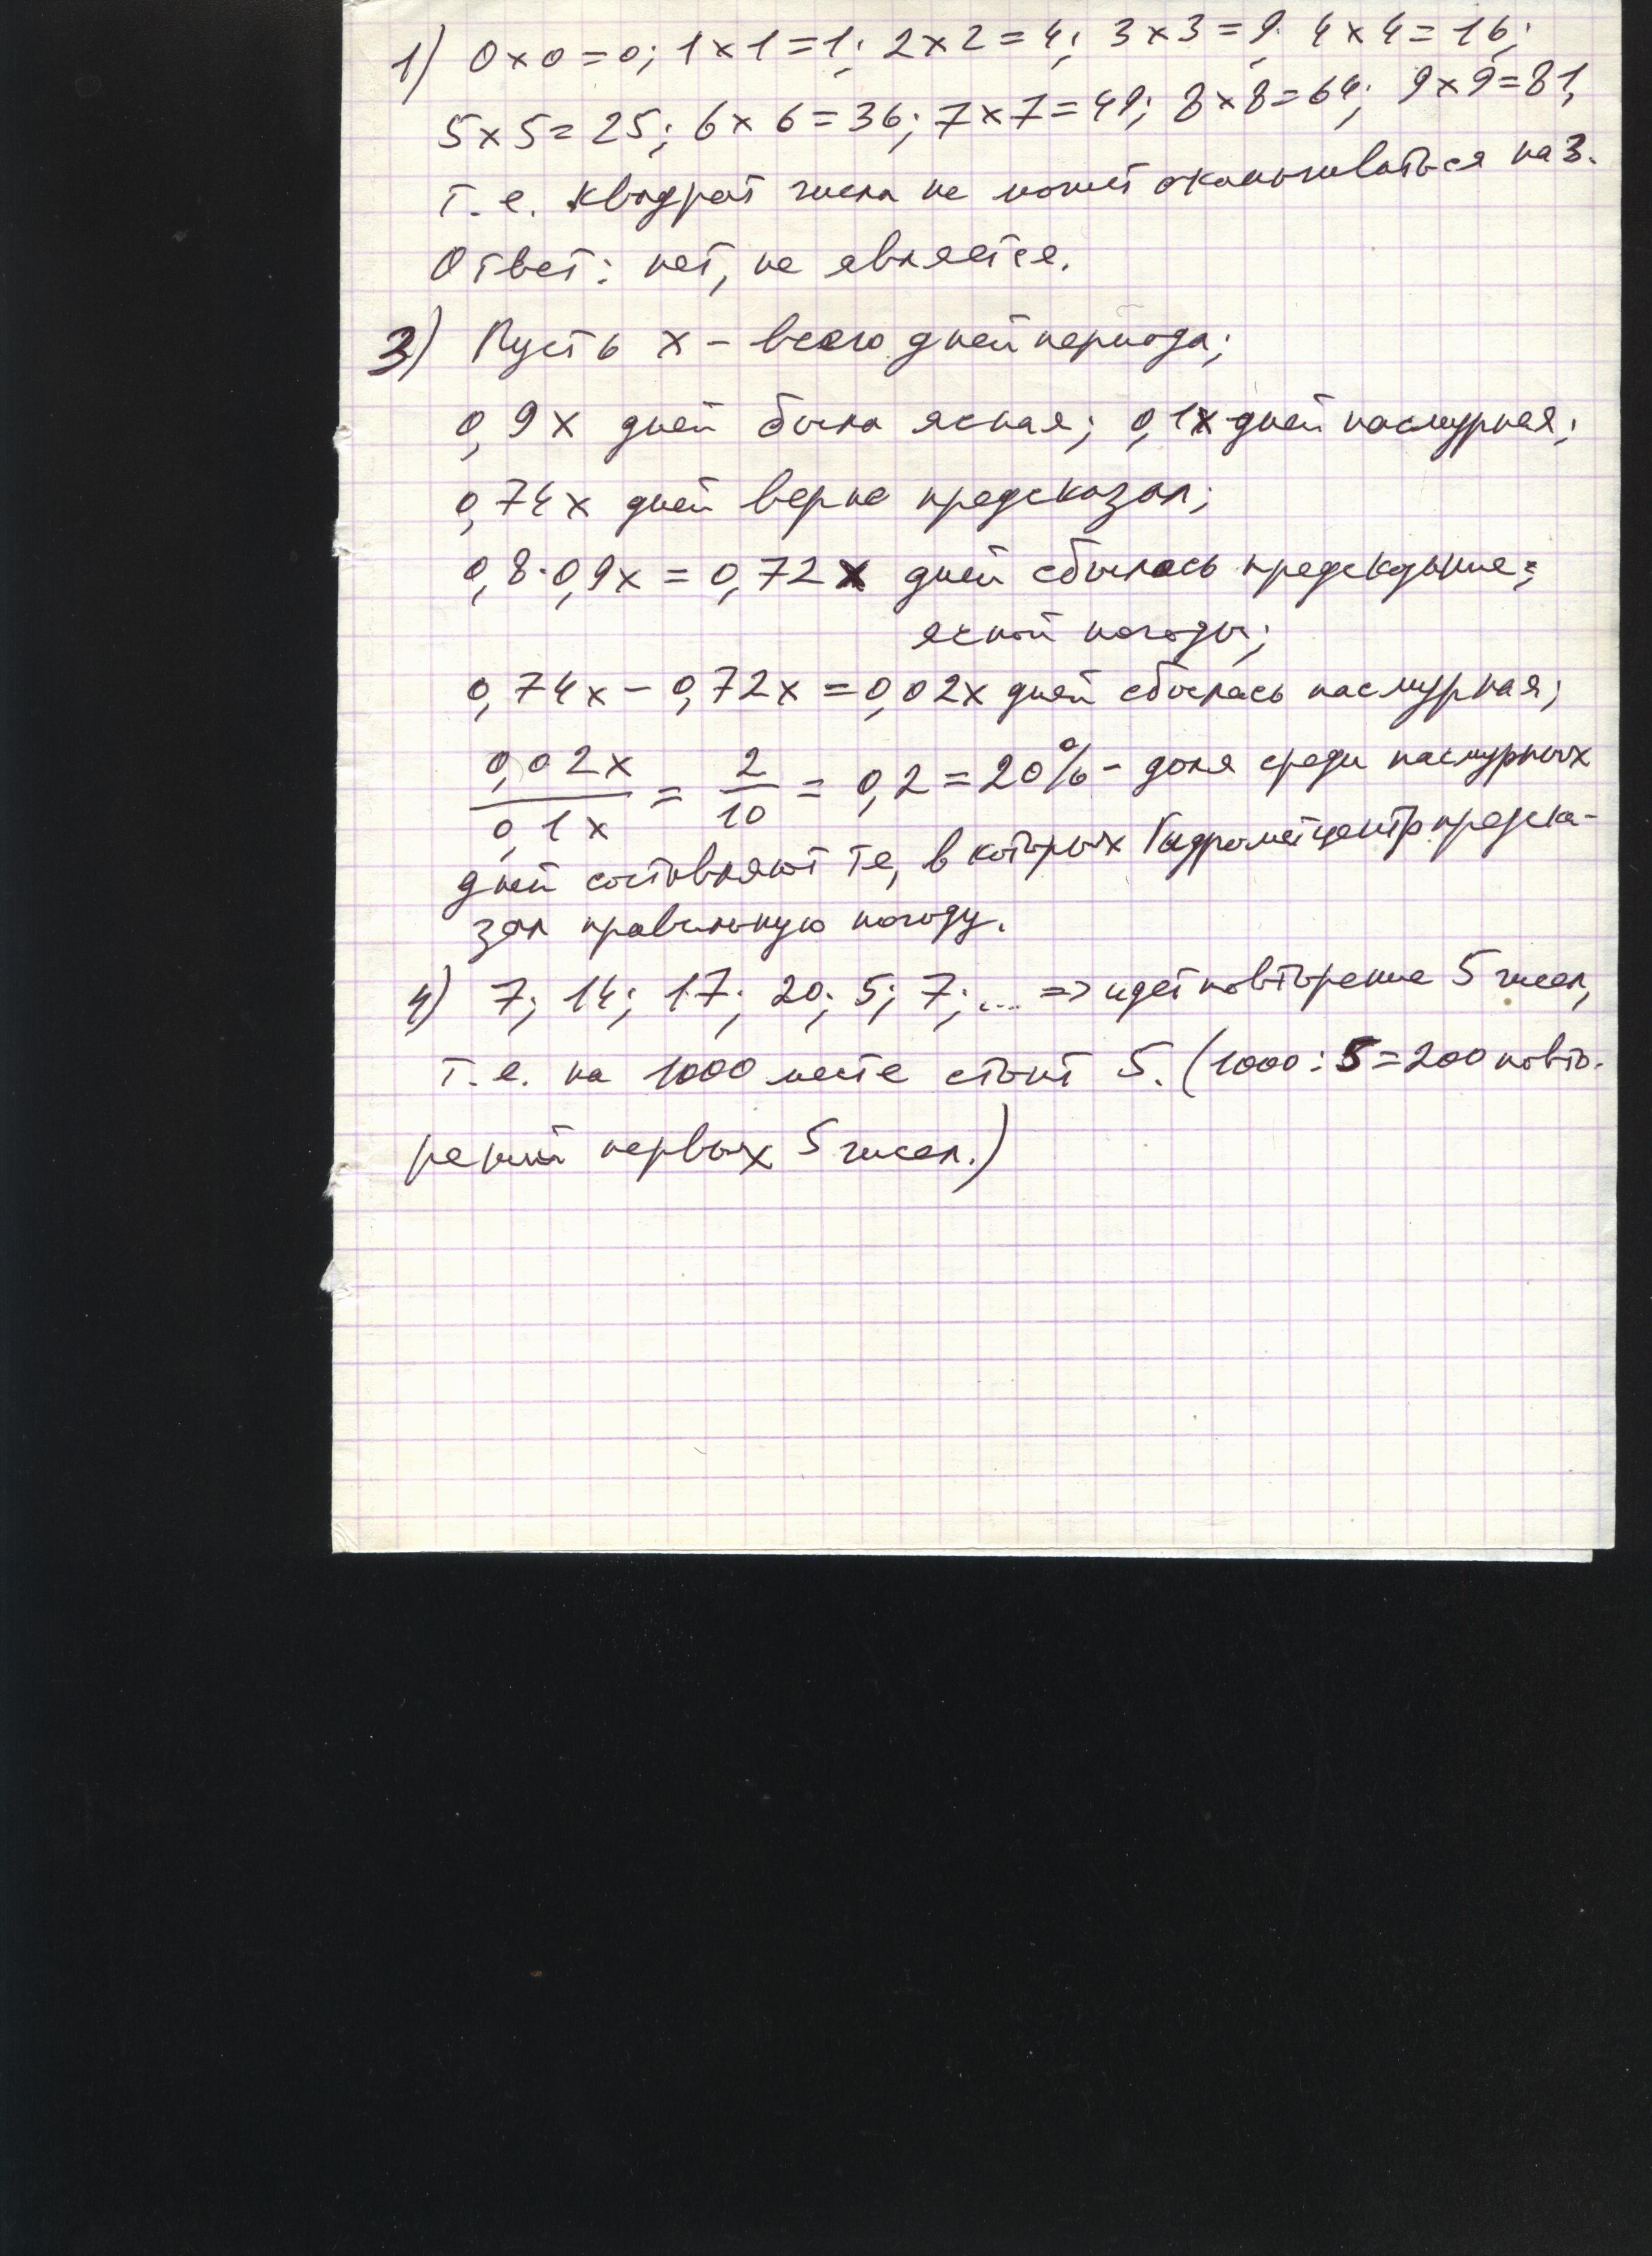 1) 0×0=0; 1×1=1; 2×2=4; 3×3=9; 4×4=16;
5×5=25; 6×6=36; 7×7=49; 8×8=64; 9×9=81,
т.е. квадрат числа не может оканчиваться на 3.
Ответ: нет, не является.
3) Пусть x – всего дней периода;
0,9x дней была ясная; 0,1x дней пасмурная;
0,74x дней верно предсказал;
0,8·0,9x=0,72x дней сбылось предсказание
ясной погоды;
0,74x – 0,72x = 0,02x дней сбылась пасмурная;
0,02x/0,1x = 2/10 = 0,2 = 20% – доля среди пасмурных
дней составляют те, в которых Гидрометцентр предска-
зал правильную погоду.
4) 7; 14; 17; 20; 5; 7; ... => идет повторение 5 чисел,
т.е. на 1000 месте стоит 5. (1000:5=200 повто-
рений первых 5 чисел.)